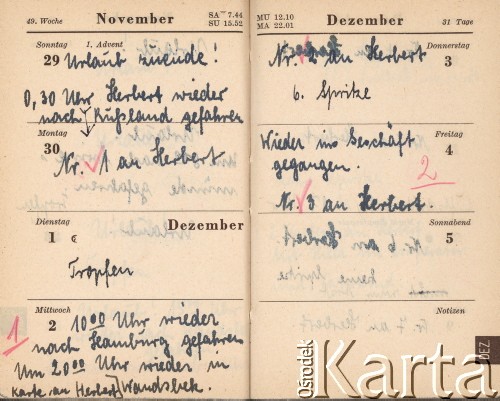 49. Woche November SA 7.44
SU 15.52
Sonntag 1. Advent
29 Urlaub zuende!
0,30 Uhr Herbert wieder
nach Rußland gefahren
Montag
30 Nr. 1 an Herbert
Dienstag Dezember
1
Tropfen
Mittwoch
1 2 10 00 Uhr wieder
nach Hamburg gefahren
Um 20 00 Uhr wieder in
Karte an Herbert Wandsbek.
MU 12.10
MA 22.01 Dezember 31 Tage
Donnerstag
Nr. 2 an Herbert 3
6. Spritze
Freitag
Wieder ins Geschäft 4
gegangen. 2
Nr. 3 an Herbert.
Sonnabend
5
Notizen
DEZ
Ośrodek Karta